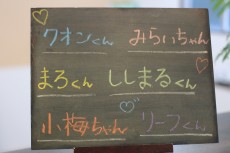 クオンくん みらいちゃん
まろくん ししまるくん
小梅ちゃん リーフくん